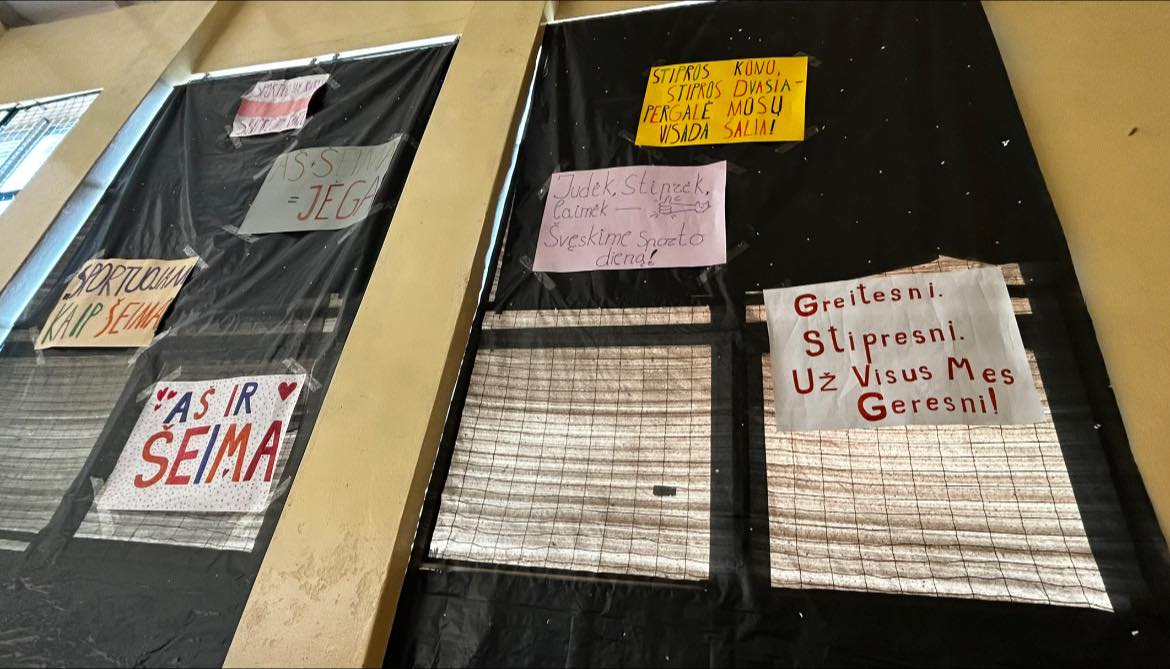 AŠ+ŠEIMA
= JĖGA
SPORTUOJAM
KAIP ŠEIMA
AŠ IR
ŠEIMA
STIPROS KŪNO,
STIPROS DVASIA-
PERGALĖ MŪSŲ
VISADA ŠALIA!
Judėk, Stiprėk,
laimėk —
Švęskime sporto
dieną!
Greitesni.
Stipresni.
Už Visus Mes
Geresni!